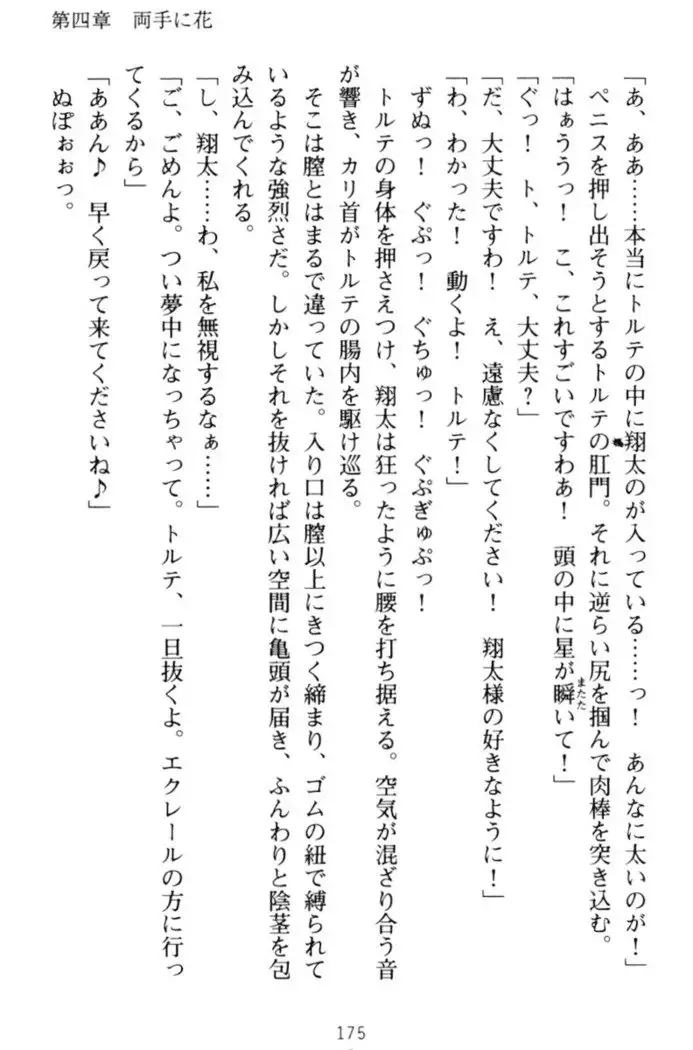 第四章　両手に花
「あ、ああ……本当にトルテの中に翔太のが入っている……っ！　あんなに太いのが！」
ペニスを押し出そうとするトルテの肛門。それに逆らい尻を掴んで肉棒を突き込む。
「はぁううっ！　こ、これすごいですわあ！　頭の中に星が瞬いて！」
またた
「ぐっ！　ト、トルテ、大丈夫？」
「だ、大丈夫ですわ！　え、遠慮なくしてください！　翔太様の好きなように！」
「わ、わかった！　動くよ！　トルテ！」
ずぬっ！　ぐぷっ！　ぐちゅっ！　ぐぷぎゅぷっ！
トルテの身体を押さえつけ、翔太は狂ったように腰を打ち据える。空気が混ざり合う音
が響き、カリ首がトルテの腸内を駆け巡る。
そこは膣とはまるで違っていた。入り口は膣以上にきつく締まり、ゴムの紐で縛られて
いるような強烈さだ。しかしそれを抜ければ広い空間に亀頭が届き、ふんわりと陰茎を包
み込んでくれる。
「し、翔太……わ、私を無視するなぁ……」
「ご、ごめんよ。つい夢中になっちゃって。トルテ、一旦抜くよ。エクレールの方に行っ
てくるから」
「ああん♪　早く戻って来てくださいね♪」
ぬぽぉぉっ。
175